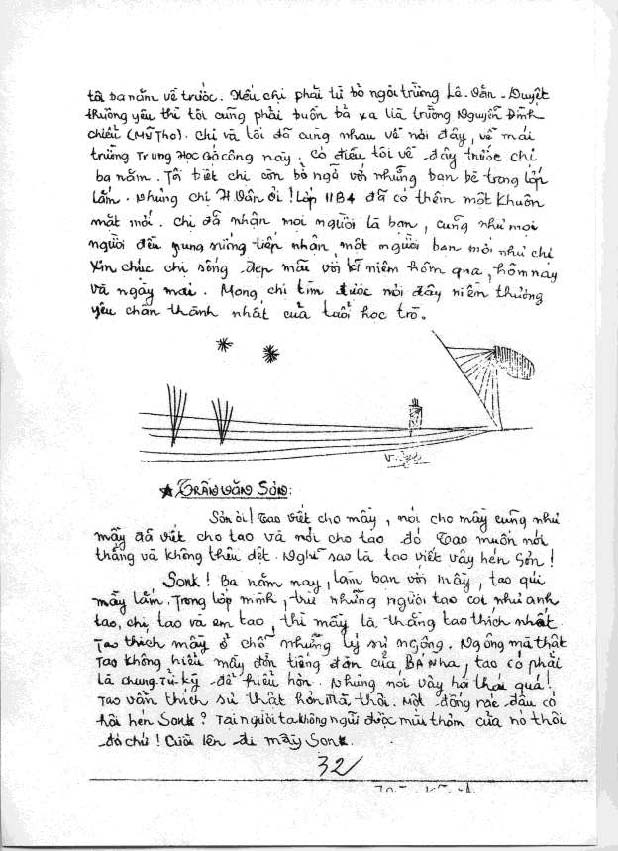 tôi ba năm về trước. Nếu chị phải từ bỏ ngôi trường Lê. Văn. Duyệt
thương yêu thì tôi cũng phải buồn bã xa lìa trường Nguyễn Đình
Chiểu (Mỹ Tho). Chị và tôi đã cùng nhau về nơi đây, về mái
trường Trung Học Gò Công này. Có điều tôi về đây trước chị
ba năm. Tôi biết chị còn bỡ ngỡ với những bạn bè trong lớp
lắm. Nhưng chị H. Vân ơi! Lớp 11B4 đã có thêm một khuôn
mặt mới. Chị đã nhận mọi người là bạn, cũng như mọi
người đều sung sướng tiếp nhận một người bạn mới như chị
Xin chúc chị sống đẹp mãi với kĩ niệm hôm qua, hôm nay
và ngày mai. Mong chị tìm được nơi đây niềm thương
yêu chân thành nhất của tuổi học trò.
★ TRẦN VĂN SƠN:
Sơn ơi! Tao viết cho mầy, nói cho mầy cũng như
mầy đã viết cho tao và nói cho tao đó Tao muốn nói
thẳng và không thêu dệt. Nghĩ sao là tao viết vậy hén Sơn!
Sonk! Ba năm nay, làm bạn với mầy, tao quí
mầy lắm. Trong lớp mình, trừ những người tao coi như anh
tao, chị tao và em tao, thì mầy là thằng tao thích nhất.
Tao thích mầy ở chỗ những lý sự ngông. Ngông mà thật
Tao không hiểu mầy đờn tiếng đàn của BÁ Nha, tao có phải
là chung. Tử. Kỳ để hiểu hơn. Nhưng nói vậy hơi thái quá!
Tao vẫn thích sự thật hơn mà thôi. Một đống rác đâu có
hôi hén Sonk? Tại người ta không ngửi được mùi thơm của nó thôi
đó chứ! Cười lên đi mầy Sonk.
32